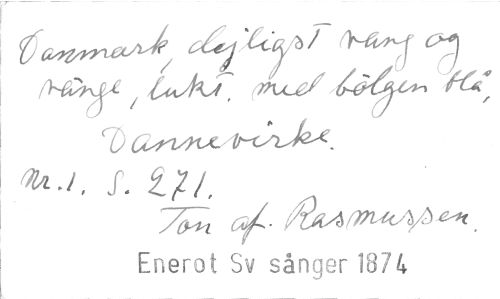 Danmark, dejligst vang og
vänge, lukt. med bölgen blå,
Dannevirke.
Nr. 1. S. 271.
Ton af. Rasmussen.
Enerot Sv sånger 1874